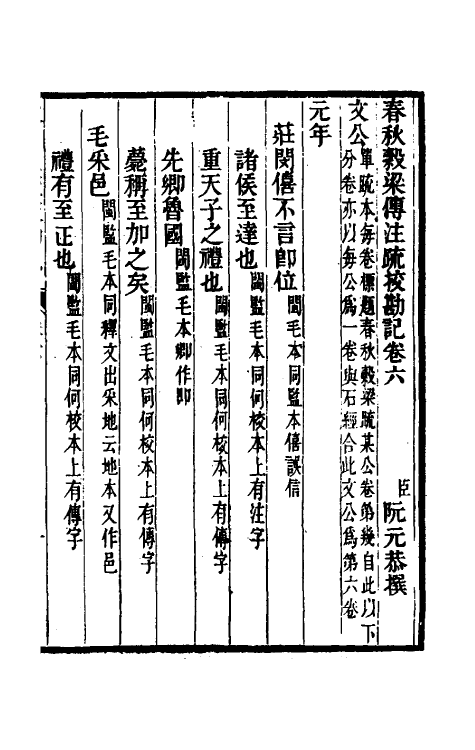 春秋穀梁傳注疏挍勘記卷六 臣阮元恭撰
文公單疏本每卷標題春秋穀梁疏某公卷第幾自此以下
分卷亦以每公爲一卷與石經合此文公爲第六卷
元年
莊閔僖不言卽位閩毛本同監本僖誤信
諸侯至達也閩監毛本同何挍本上有注字
重天子之禮也閩監毛本同何挍本上有傳字
先卿魯國閩監毛本卿作卽
薨稱至加之矣閩監毛本同何挍本上有傳字
毛采邑閩監毛本同釋文出采地云地本又作邑
禮有至正也閩監毛本同何挍本上有傳字